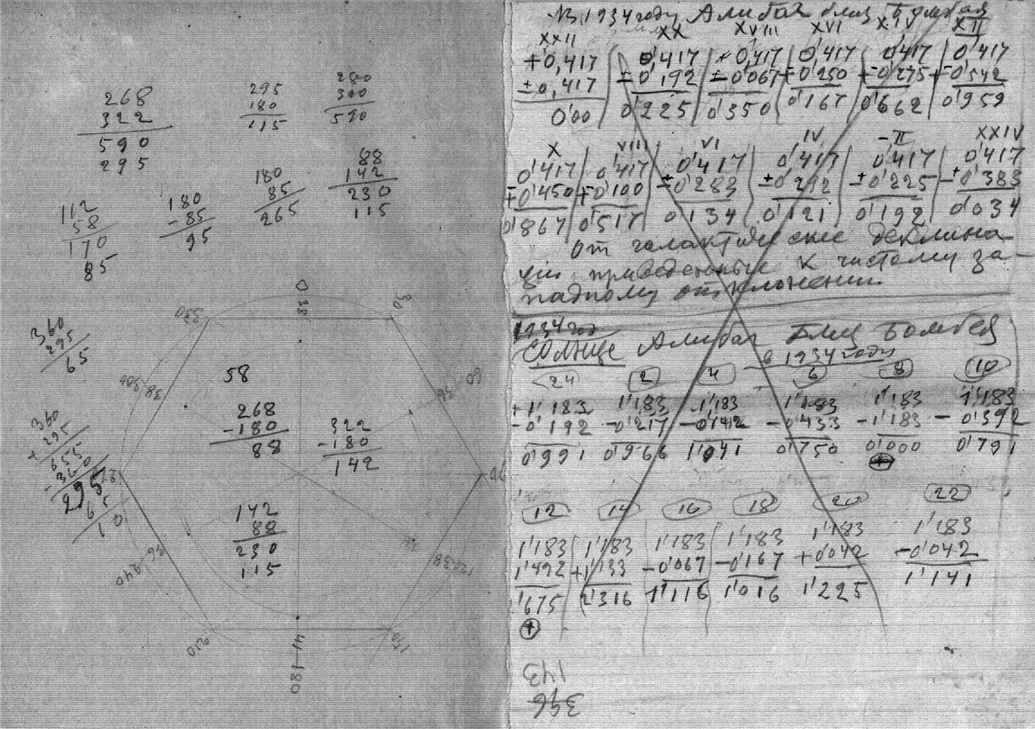 268
322
590
295
295
180
115
280
300
590
112
58
170
85
180
-85
95
180
85
265
88
142
230
115
360
295
65
360
295
655
-360
295
65
58
268
-180
88
322
-180
142
142
88
230
115
0
30
60
120
180
240
330
В 1934 году Алибаг близ Бомбея
XXII XX XVIII XVI XIV XII
+0,417 0,417 +0,417 0'417 0'417 0'417
±0,417 ±0'192 ±0'067 ∓0'250 ∓0'542
0'00 0'225 0'350 0'167 0'662 0'959
X VIII VI IV -II XXIV
0'417 0'417 0'417 0'417 0'417 0'417
∓0'450 ∓0'100 ±0'283 ±0'225 ±0'383
0'867 0'517 0'134 0'121 0'192 0'034
От галактические деклина-
ции приведенные к чистому за-
падному отклонению
1934 год
Солнце Алибаг близ Бомбея
в 1934 году
24 2 4 6 8 10
+1'183 1'183 1'183 1'183 1'183 1'183
-0'192 -0'217 -0'142 -0'433 -1'183 -0'392
0'991 0'966 1'041 0'750 0'000 0'791
12 14 16 18 20 22
1'183 1'183 1'183 1'183 1'183 1'183
1'492 +1'133 -0'067 -0'167 +0'042 -0'042
1'675 2'316 1'116 1'016 1'225 1'141
143
396